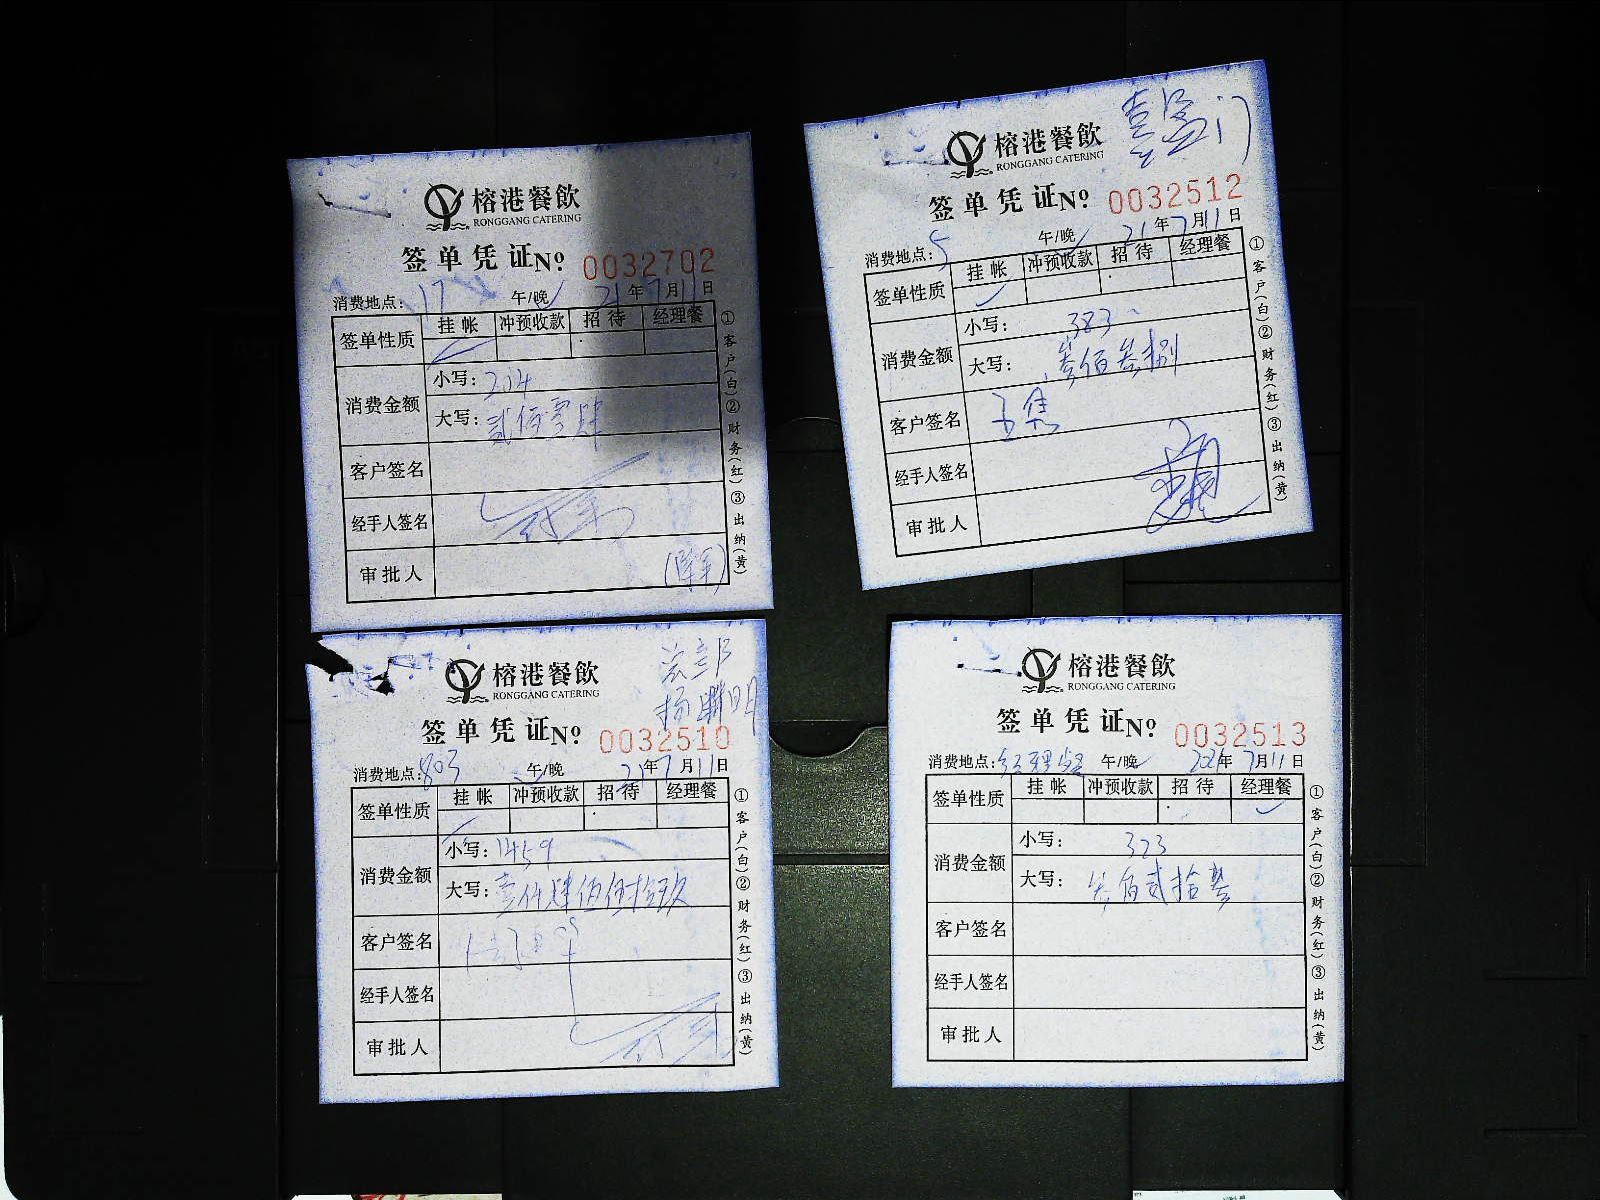 榕港餐飲
RONGGANG CATERING
签单凭证 Nº 0032702
消费地点: 17 午/晚 21年7月11日
签单性质 挂帐 冲预收款 招待 经理餐
消费金额 小写: 204
大写: 贰佰零肆
客户签名
经手人签名
审批人
①客户(白)②财务(红)③出纳(黄)
榕港餐飲
RONGGANG CATERING
喜盈门
签单凭证 Nº 0032512
消费地点: 5 午/晚 21年7月11日
签单性质 挂帐 冲预收款 招待 经理餐
消费金额 小写: 383
大写: 叁佰叁捌
客户签名
经手人签名
审批人
①客户(白)②财务(红)③出纳(黄)
榕港餐飲
RONGGANG CATERING
签单凭证 Nº 0032510
消费地点: 803 午/晚 21年7月11日
签单性质 挂帐 冲预收款 招待 经理餐
消费金额 小写: 1459
大写: 壹仟肆佰伍拾玖
客户签名
经手人签名
审批人
①客户(白)②财务(红)③出纳(黄)
榕港餐飲
RONGGANG CATERING
签单凭证 Nº 0032513
消费地点: 经理 午/晚 2021年7月11日
签单性质 挂帐 冲预收款 招待 经理餐
消费金额 小写: 323
大写: 叁佰贰拾叁
客户签名
经手人签名
审批人
①客户(白)②财务(红)③出纳(黄)